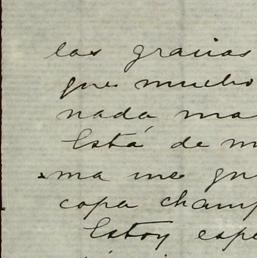 las gracias
que mucho
nada ma
Está de m
ma me gu
copa champ
Estoy espe